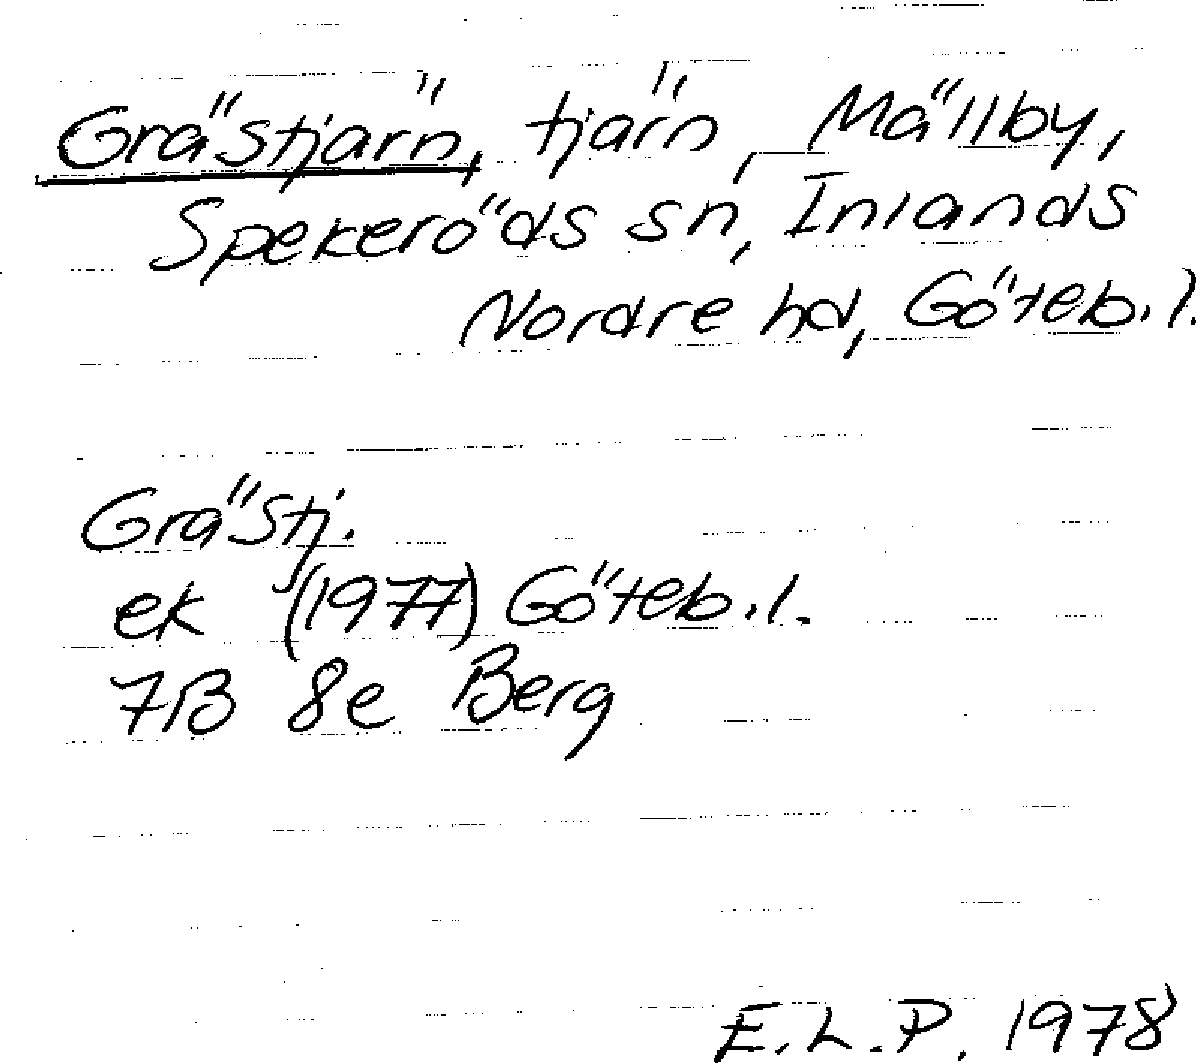 Grästjärn, tjärn, Mällby,
Spekeröds sn, Inlands
Nordre hd, Göteb.l.
Grästj.
ek (1977) Göteb.l.
7B 8e Berg
E.L.P. 1978